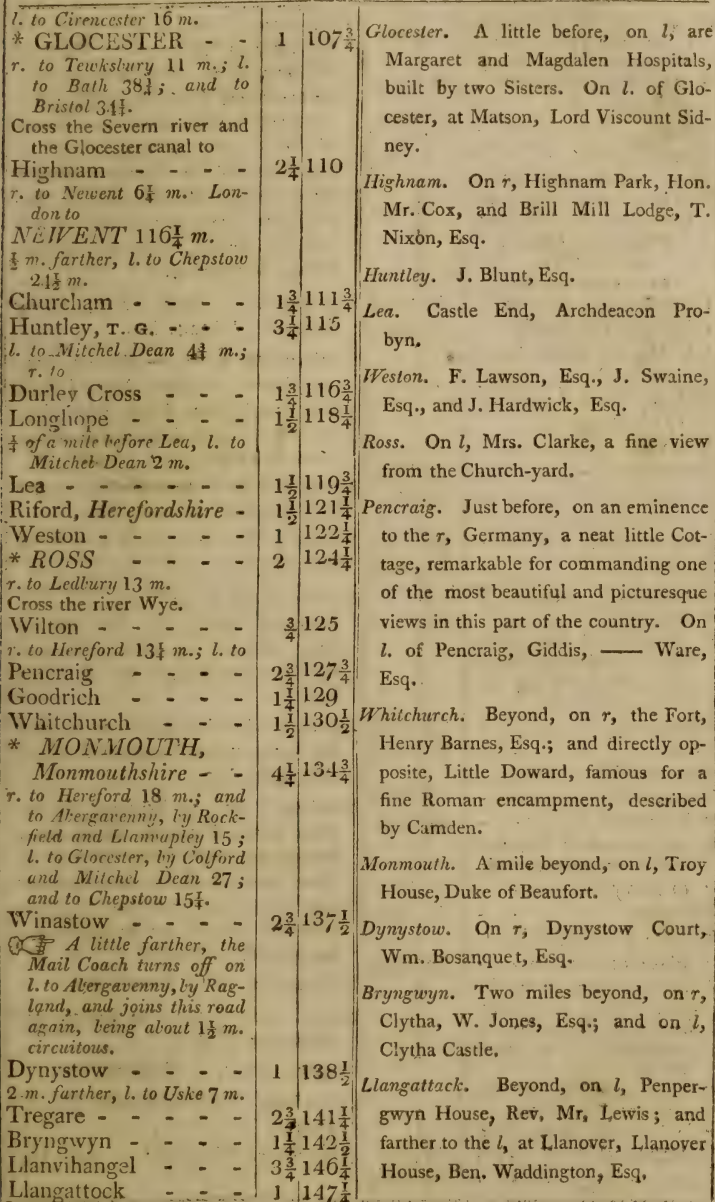 l. to Cirencester 16 m.
* GLOCESTER - - 1 107¾
r. to Tewksbury 11 m.; l.
to Bath 38¾; and to
Bristol 34½.
Cross the Severn river and
the Glocester canal to
Highnam - - - - 2¼ 110
r. to Newent 6¼ m. Lon-
don to
NEWENT 116¼ m.
¼ m. farther, l. to Chepstow
24½ m.
Churcham - - - - 1¾ 111¾
Huntley, T. G. - - - 3¼ 115
l. to Mitchel Dean 4¾ m.;
r. to
Durley Cross - - - 1¾ 116¾
Longhope - - - - 1½ 118¼
¼ of a mile before Lea, l. to
Mitchel Dean 2 m.
Lea - - - - - - 1½ 119¾
Riford, Herefordshire - 1½ 121¼
Weston - - - - - 1 122¼
* ROSS - - - - 2 124¼
r. to Ledbury 13 m.
Cross the river Wye.
Wilton - - - - - ¾ 125
r. to Hereford 13¼ m.; l. to
Pencraig - - - - 2¾ 127¾
Goodrich - - - - 1¼ 129
Whitchurch - - - 1½ 130½
* MONMOUTH,
Monmouthshire - - 4¼ 134¾
r. to Hereford 18 m.; and
to Abergavenny, by Rock-
field and Llanvapley 15;
l. to Glocester, by Colford
and Mitchel Dean 27;
and to Chepstow 15¼.
Winastow - - - - 2¾ 137½
☞ A little farther, the
Mail Coach turns off on
l. to Abergavenny, by Rag-
land, and joins this road
again, being about 1½ m.
circuitous.
Dynystow - - - - 1 138½
2 m. farther, l. to Uske 7 m.
Tregare - - - - - 2¾ 141¼
Bryngwyn - - - - 1¼ 142½
Llanvihangel - - - 3¾ 146¼
Llangattock - - - 1 147¼
Glocester. A little before, on l, are
Margaret and Magdalen Hospitals,
built by two Sisters. On l. of Glo-
cester, at Matson, Lord Viscount Sid-
ney.
Highnam. On r, Highnam Park, Hon.
Mr. Cox, and Brill Mill Lodge, T.
Nixon, Esq.
Huntley. J. Blunt, Esq.
Lea. Castle End, Archdeacon Pro-
byn.
Weston. F. Lawson, Esq., J. Swaine,
Esq., and J. Hardwick, Esq.
Ross. On l, Mrs. Clarke, a fine view
from the Church-yard.
Pencraig. Just before, on an eminence
to the r, Germany, a neat little Cot-
tage, remarkable for commanding one
of the most beautiful and picturesque
views in this part of the country. On
l. of Pencraig, Giddis, —— Ware,
Esq.
Whitchurch. Beyond, on r, the Fort,
Henry Barnes, Esq.; and directly op-
posite, Little Doward, famous for a
fine Roman encampment, described
by Camden.
Monmouth. A mile beyond, on l, Troy
House, Duke of Beaufort.
Dynystow. On r, Dynystow Court,
Wm. Bosanquet, Esq.
Bryngwyn. Two miles beyond, on r,
Clytha, W. Jones, Esq.; and on l,
Clytha Castle.
Llangattack. Beyond, on l, Penper-
gwyn House, Rev. Mr. Lewis; and
farther to the l, at Llanover, Llanover
House, Ben. Waddington, Esq.